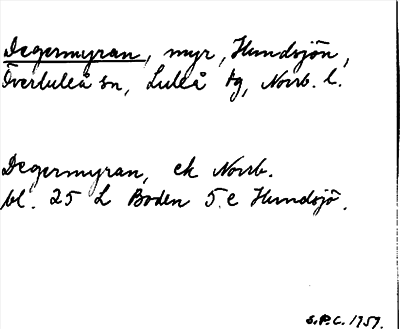 Degermyran, myr, Hundsjön,
Överluleå sn, Luleå tg, Norrb. l.
Degermyran, ek Norrb.
bl. 25 L Boden 5.e Hundsjö.
S.P.C. 1959.